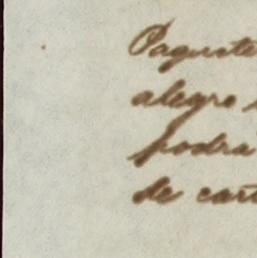 Paquete
alegre
podra
de car